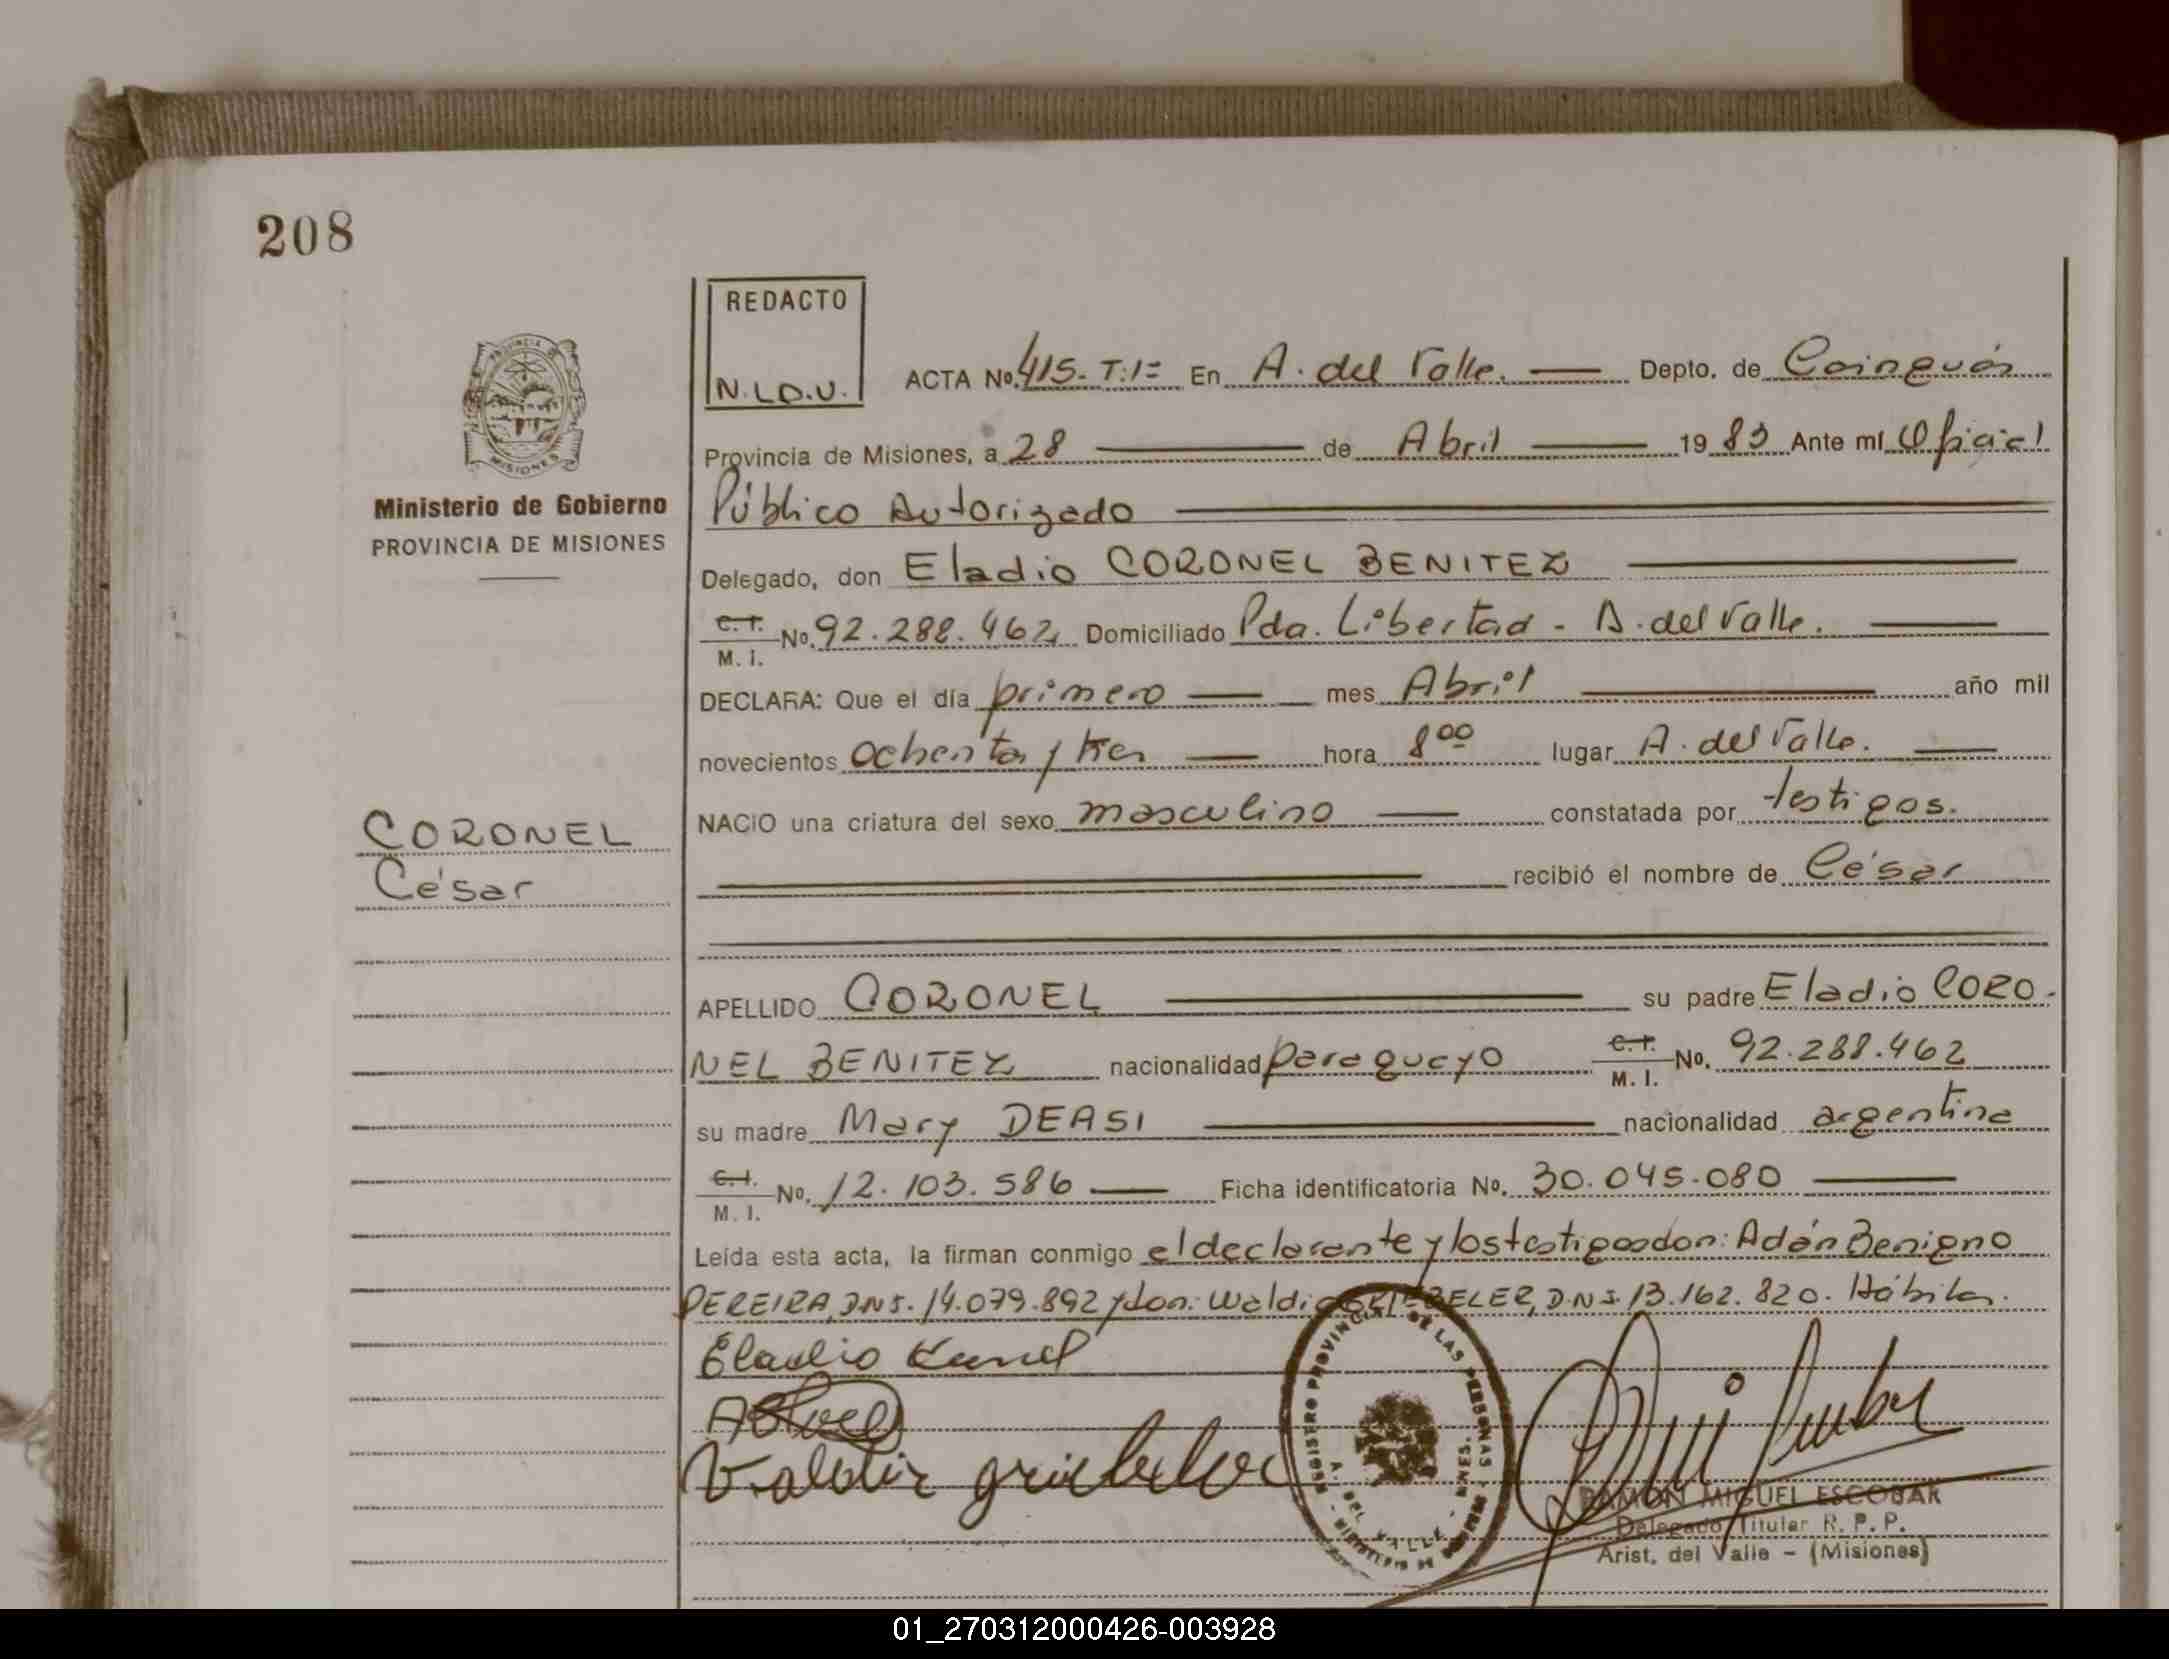 208
REDACTO
N.L.D.V.
ACTA No. 415. T:1= En A. del Valle. Depto. de Cainguás
Provincia de Misiones, a 28 de Abril 1983 Ante mí Oficial
Público Autorizado
Delegado, don Eladio CORONEL BENITEZ
C. I. No. 92.288.462 Domiciliado Pda. Libertad - A. del Valle.
M. I.
DECLARA: Que el día primero mes Abril año mil
novecientos ochenta y tres hora 8 00 lugar A. del Valle.
NACIO una criatura del sexo masculino constatada por testigos.
recibió el nombre de César
APELLIDO CORONEL su padre Eladio CORO-
NEL BENITEZ nacionalidad paraguayo C. I. No. 92.288.462
M. I.
su madre Mary DEASI nacionalidad argentina
C. I. No. 12.103.586 Ficha identificatoria No. 30.045.080
M. I.
Leída esta acta, la firman conmigo el declarante y los testigos don: Adán Benigno
PEREIRA, D.N.I. 14.079.892 y don: Waldi BELER, D.N.I. 13.162.820. Hábiles.
PROVINCIA DE
MISIONES
Ministerio de Gobierno
PROVINCIA DE MISIONES
CORONEL
César
Eladio
REGISTRO PROVINCIAL DE LAS PERSONAS
A. DEL VALLE
RAMON MIGUEL ESCOBAR
Delegado Titular R. P. P.
Arist. del Valle - (Misiones)
01_270312000426-003928